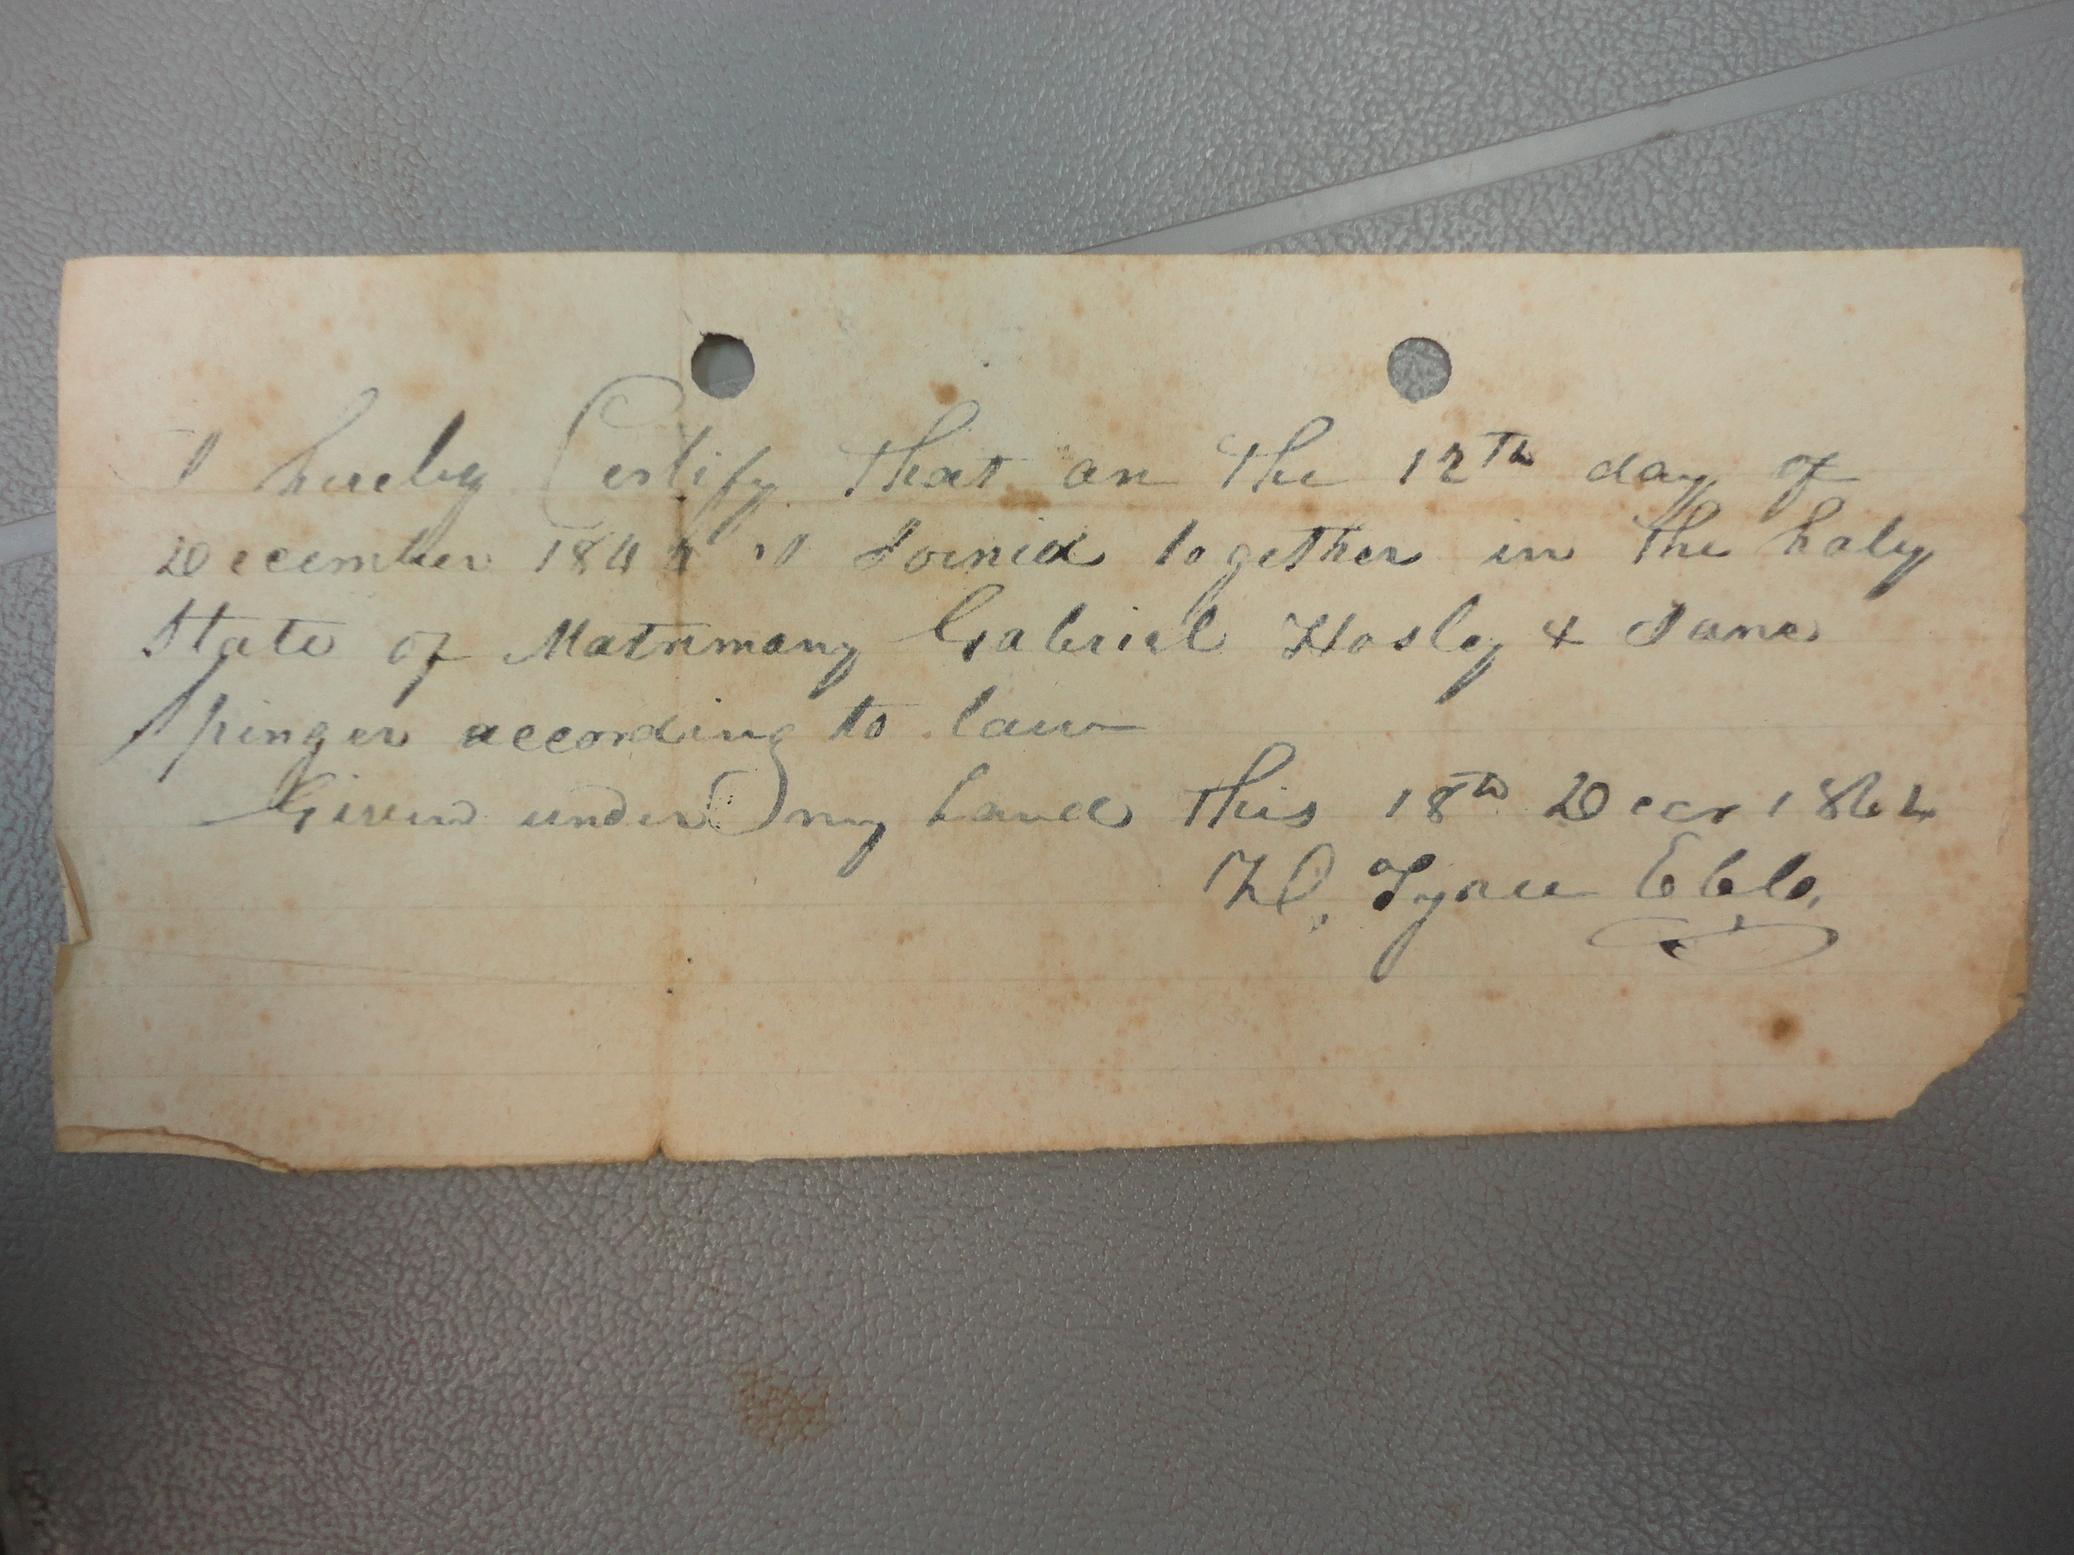 I hereby Certify that on the 12th day of
December 1844 I Joined together in the holy
State of Matrimony Gabriel Hosley & Jane
Spinger according to law
Given under my hand this 18th Decr 1844
Tyree